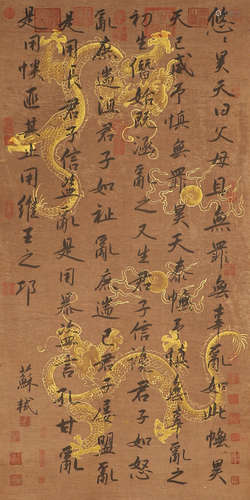 悠〻昊天曰父母且無罪無辜亂如此憮昊
天已威予慎無罪昊天泰憮予慎無辜亂之
初生僭始既涵亂之又生君子信讒君子如怒
亂庶遄沮君子如祉亂庶遄已君子屢盟亂
是用長君子信盜亂是用暴盜言孔甘亂
是用餤匪其止共維王之邛
蘇軾